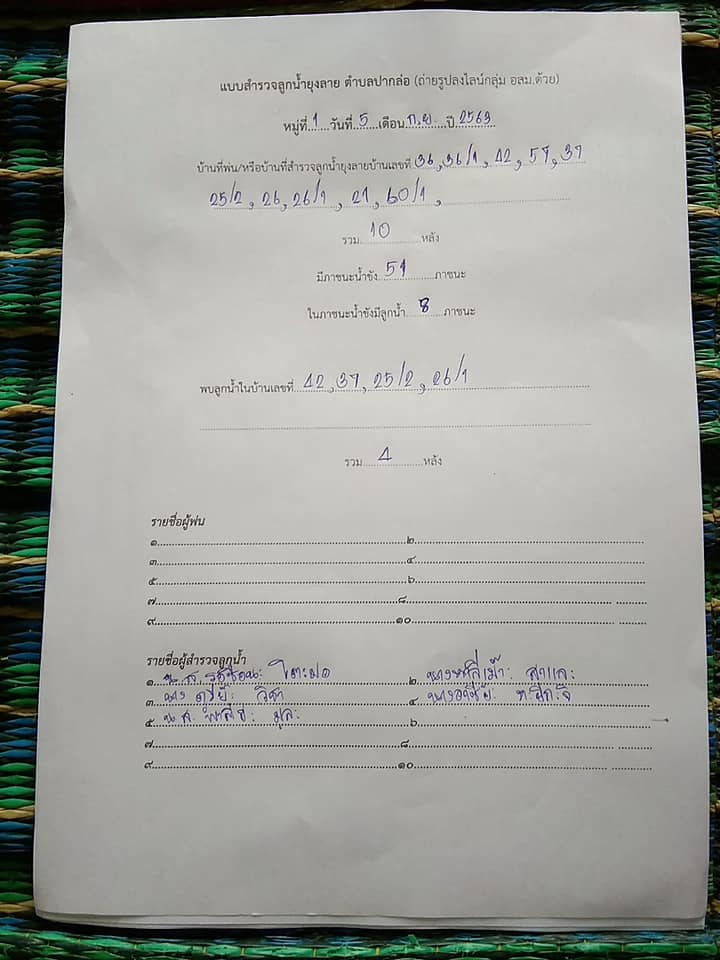 แบบสำรวจลูกน้ำยุงลาย ตำบลปากล่อ (ถ่ายรูปลงไลน์กลุ่ม อสม.ด้วย)
หมู่ที่ 1 วันที่ 5 เดือน ก.ย. ปี 2563
บ้านที่พ่น/หรือบ้านที่สำรวจลูกน้ำยุงลายบ้านเลขที่ 36, 36/1, 42, 57, 37
25/2, 26, 26/1, 21, 60/1,
รวม 10 หลัง
มีภาชนะน้ำขัง 51 ภาชนะ
ในภาชนะน้ำขังมีลูกน้ำ 8 ภาชนะ
พบลูกน้ำในบ้านเลขที่ 42, 37, 25/2, 26/1
รวม 4 หลัง
รายชื่อผู้พ่น
๑ ๒
๓ ๔
๕ ๖
๗ ๘
๙ ๑๐
รายชื่อผู้สำรวจลูกน้ำ
๑ น.ส. ๒ นาง
๓ นาง ๔ นาง
๕ น.ส. ๖
๗ ๘
๙ ๑๐